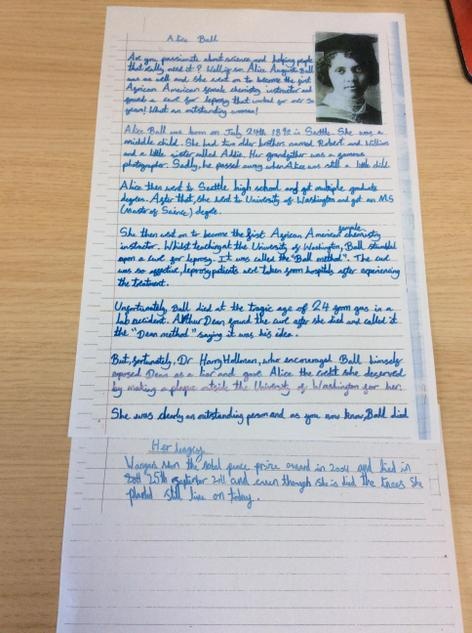 Alice Ball
Are you passionate about science and helping people
that really need it? Well, so Alice Augusta Ball
was as well and she went on to become the first
African American female chemistry instructor and
found a cure for leprosy that worked for over 30
years! What an outstanding woman!
Alice Ball was born on July 24th 1892 in Seattle. She was a
middle child. She had two older brothers named Robert and William
and a little sister called Addie. Her grandfather was a famous
photographer. Sadly, he passed away when Alice was still a little child.
Alice then went to Seattle high school and got multiple graduate
degrees. After that, she went to University of Washington and got an MS
(Master of Science) degree.
She then went on to become the first African American female chemistry
instructor. Whilst teaching at the University of Washington, Ball stumbled
upon a cure for leprosy. It was called the "Ball method". The cure
was so effective, leprosy patients were taken from hospitals after experiencing
the treatment.
Unfortunately, Ball died at the tragic age of 24 from gas in a
lab accident. Arthur Dean found the cure after she died and called it
the "Dean method" saying it was his idea.
But, fortunately, Dr Harry Hollman, who encouraged Ball himself
exposed Dean as a liar and gave Alice the credit she deserved
by making a plaque outside the University of Washington for her.
She was clearly an outstanding person and as you now know, Ball died
Her legacy
Wangari won the nobel peace prize award in 2004 and died in
25th september 2011 and even though she is died the trees she
planted still live on today.